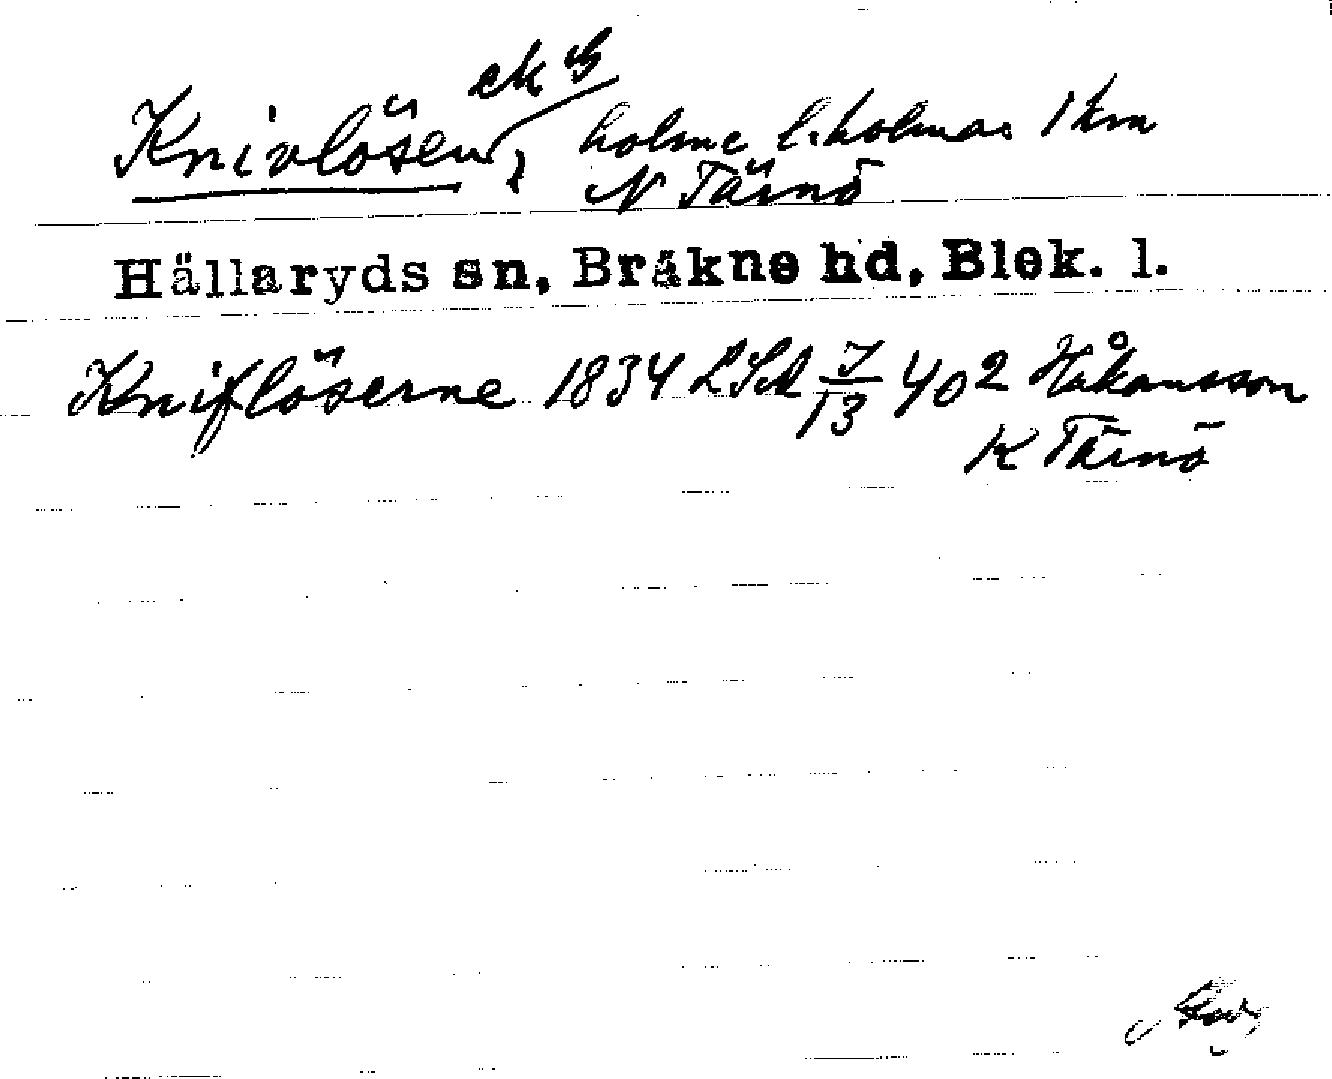 ek G
Knivlösen, holme l. holmar 1 km
N Tärnö
Hällaryds sn, Bräkne hd, Blek. l.
Kniflöserne 1834 LSA J/13 40 2 Håkansson
K Tärnö